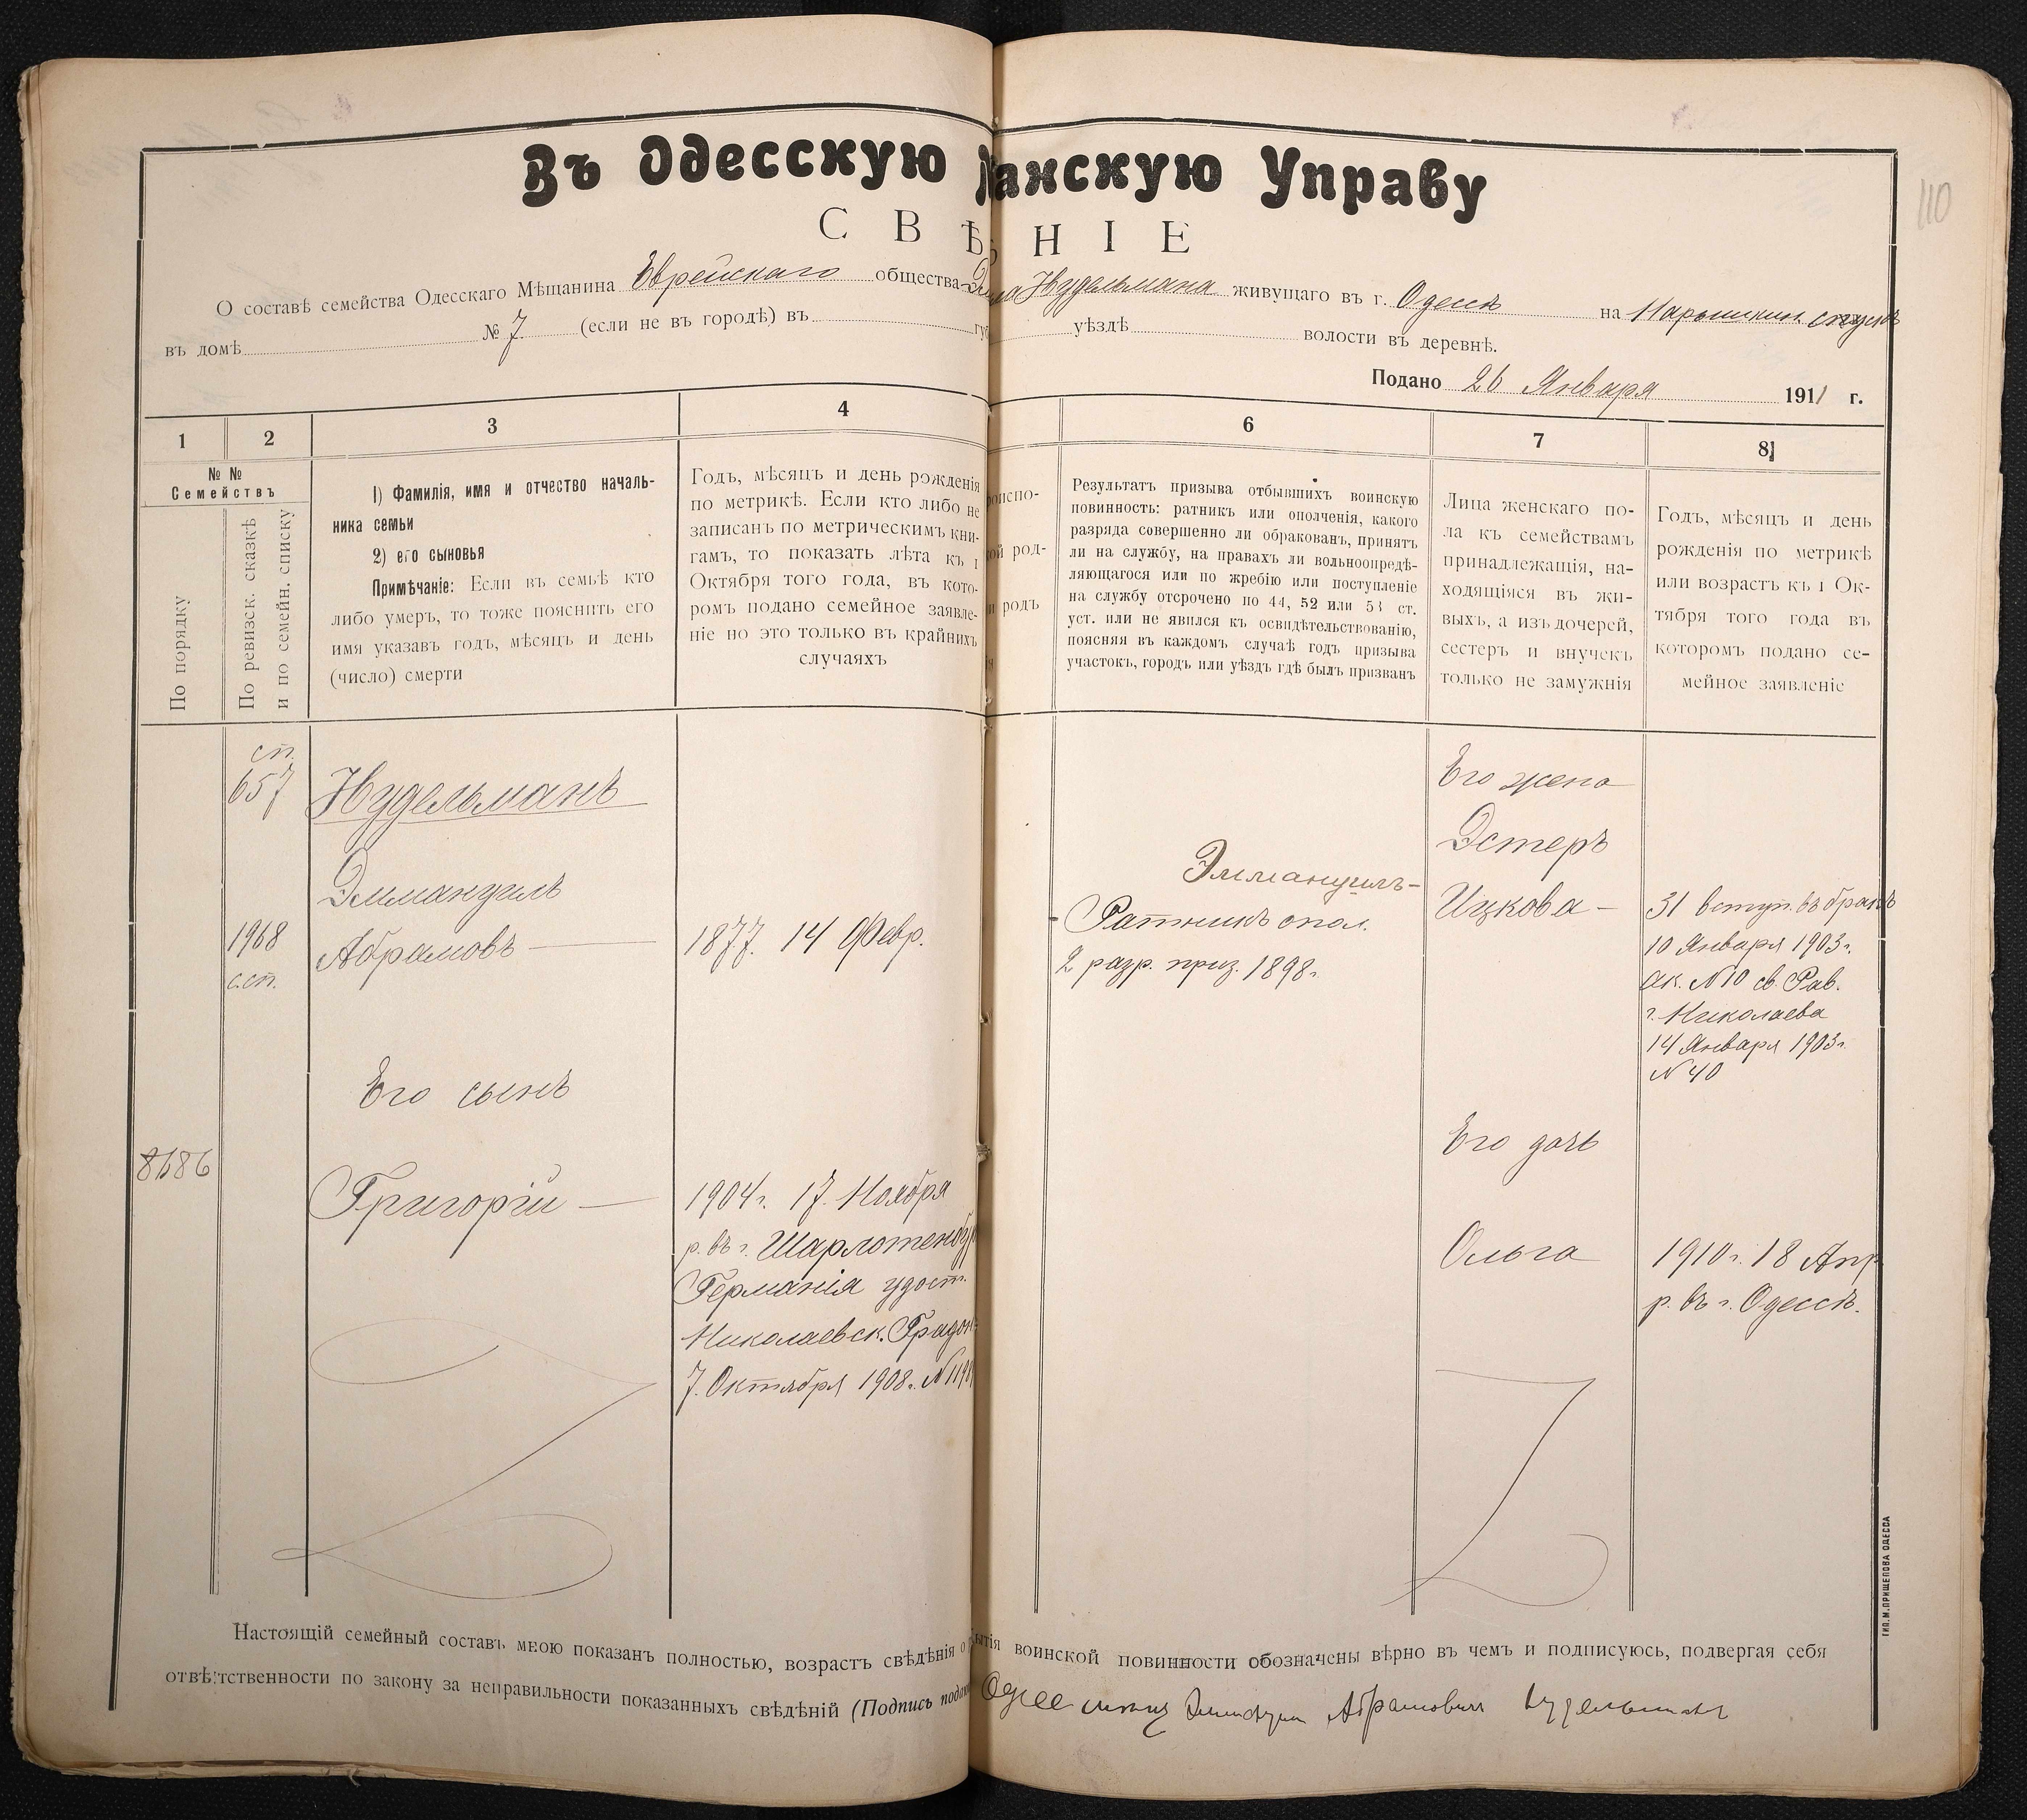 Въ Одесскую
анскую Управу
110
С В Ѣ
Н І Е
О составѣ семейства Одесскаго Мѣщанина Еврейскаго общества
Нудельмана живущаго въ г. Одессѣ на Нарышкин. спускѣ
въ домѣ № 7 (если не въ городѣ) въ
уѣздѣ волости въ деревнѣ.
Подано 26 Января 1911 г.
1
2
3
4
6
7
8
№ №
Семействъ
По порядку
По ревизск. сказкѣ
и по семейн. списку
1) Фамилія, имя и отчество началь-
ника семьи
2) его сыновья
Примѣчаніе: Если въ семьѣ кто
либо умеръ, то тоже пояснить его
имя указавъ годъ, мѣсяцъ и день
(число) смерти
Годъ, мѣсяцъ и день рожденія
по метрикѣ. Если кто либо не
записанъ по метрическимъ кни-
гамъ, то показать лѣта къ 1
Октября того года, въ кото-
ромъ подано семейное заявле-
ніе но это только въ крайнихъ
случаяхъ
роиспо-
ой род-
родъ
Результатъ призыва отбывшихъ воинскую
повинность: ратникъ или ополченія, какого
разряда совершенно ли обракованъ, принятъ
ли на службу, на правахъ ли вольноопредѣ-
ляющагося или по жребію или поступленіе
на службу отсрочено по 44, 52 или 53 ст.
уст. или не явился къ освидѣтельствованію,
поясняя въ каждомъ случаѣ годъ призыва
участокъ, городъ или уѣздъ гдѣ былъ призванъ
Лица женскаго по-
ла къ семействамъ
принадлежащія, на-
ходящіяся въ жи-
выхъ, а изъ дочерей,
сестеръ и внучекъ
только не замужнія
Годъ, мѣсяцъ и день
рожденія по метрикѣ
или возрастъ къ 1 Ок-
тября того года въ
которомъ подано се-
мейное заявленіе
сп.
657
Нудельманъ
Эммануилъ
1968
с.сп.
Абрамовъ —
1877. 14 Февр.
Эммануилъ-
Ратникъ опол.
2 разр. приз. 1898г.
Его жена
Эстеръ
Ицкова —
31 вступ. въ бракъ
10 Января 1903г.
ак. №10 св. Рав.
г. Николаева
14 Января 1903г.
№ 40
Его сынъ
8186
Григорій —
1904г. 17 Ноября
р. въ г. Шарлотенбур
Германія удост.
Николаевск. Градон
7. Октября 1908г.
Его дочь
Ольга
1910г. 18 Апр
р. въ г. Одессѣ.
Настоящій семейный составъ мною показанъ полностью, возрастъ свѣдѣнія о
ытія воинской повинности обозначены вѣрно въ чемъ и подписуюсь, подвергая себя
отвѣтственности по закону за неправильности показанныхъ свѣдѣній (Подпись
Одес Эммануил Абрамович Нудельман
ТИП. М. ПРИЩЕПОВА ОДЕССА